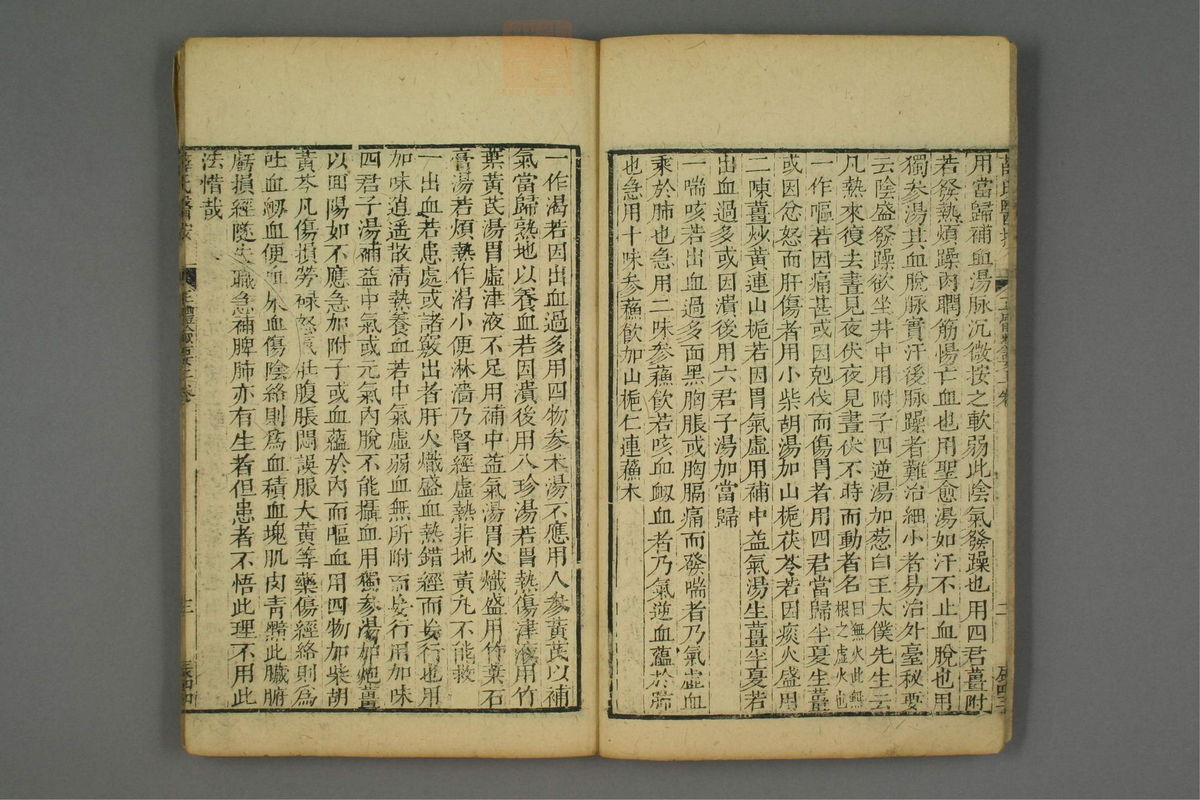 用當歸補血湯脉沉微按之軟弱此陰氣發躁也用四君薑附
若發熱煩躁肉瞤筋惕亡血也用聖愈湯如汗不止血脫也用
獨參湯其血脫脉實汗後脉躁者難治細小者易治外臺秘要
云陰盛發躁欲坐井中用附子四逆湯加葱白王太僕先生云
凡熱來復去晝見夜伏夜見晝伏不時而動者名曰無火此無根之虛火也
一作嘔若因痛甚或因剋伐而傷胃者用四君當歸半夏生薑
或因忿怒而肝傷者用小柴胡湯加山梔茯苓若因痰火盛用
二陳薑炒黃連山梔若因胃氣虛用補中益氣湯生薑半夏若
出血過多或因潰後用六君子湯加當歸
一喘咳若出血過多面黑胸脹或胸膈痛而發喘者乃氣虛血
乘於肺也急用二味參蘇飲若咳血衂血者乃氣逆血蘊於肺
也急用十味參蘇飲加山梔仁連蘇木
一作渴若因出血過多用四物參朮湯不應用人參黃芪以補
氣當歸熟地以養血若因潰後用八珍湯若胃熱傷津液用竹
葉黃芪湯胃虛津液不足用補中益氣湯胃火熾盛用竹葉石
膏湯若煩熱作渴小便淋濇乃腎經虛熱非地黃丸不能救
一出血若患處或諸竅出者肝火熾盛血熱錯經而妄行也用
加味逍遙散清熱養血若中氣虛弱血無所附而妄行用加味
四君子湯補益中氣或元氣內脫不能攝血用獨參湯加炮薑
以囘陽如不應急加附子或血蘊於內而嘔血用四物加柴胡
黃芩凡傷損勞碌怒氣肚腹脹悶誤服大黃等藥傷經絡則爲
吐血衂血便血尿血傷陰絡則爲血積血塊肌肉青黯此臟腑
虧損經隧失職急補脾肺亦有生者但患者不悟此理不用此
法惜哉
薛氏醫按
三